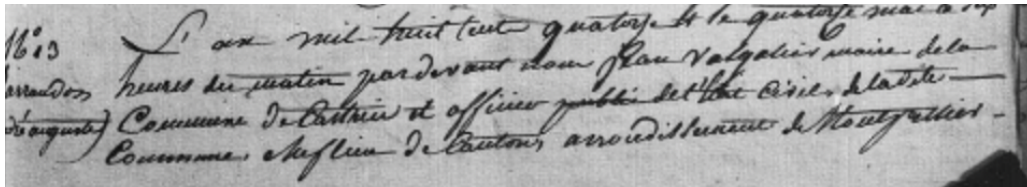 N.º 13
L'an mil huit cent quatorze et le quatorze mai à six
heures du matin pardevant nous Jean Valgalier maire de la
Commune de Castries et officier public de l'état civil, de la dite
Commune, chef lieu de Canton, arrondissement de Montpellier